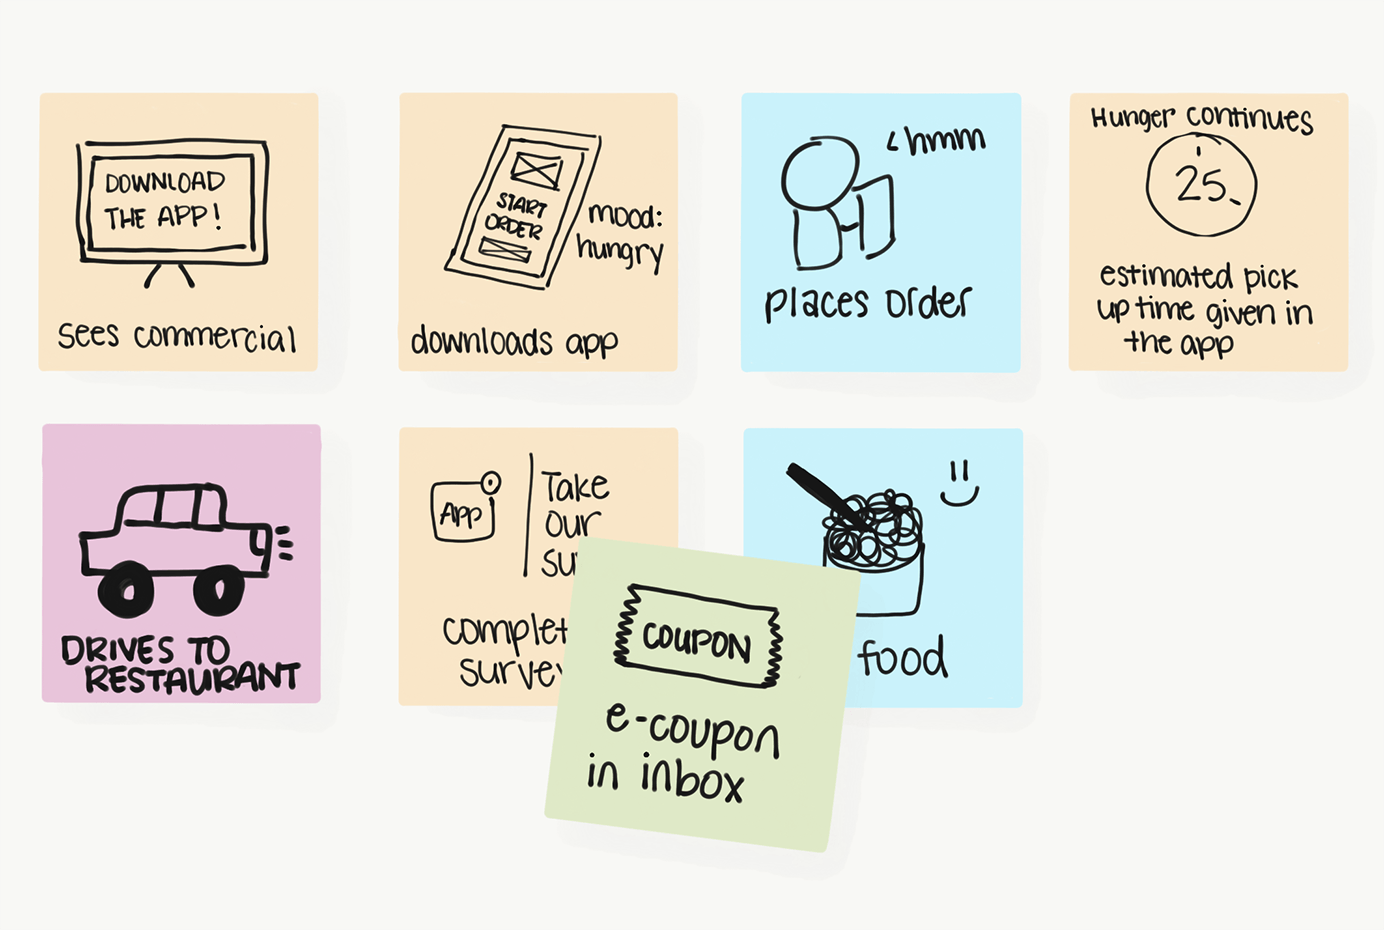 DOWNLOAD
THE APP!
sees commercial
START
ORDER
mood:
hungry
downloads app
hmm
places order
Hunger continues
25
estimated pick
up time given in
the app
DRIVES TO
RESTAURANT
APP
Take
our
COUPON
e-coupon
in inbox
food